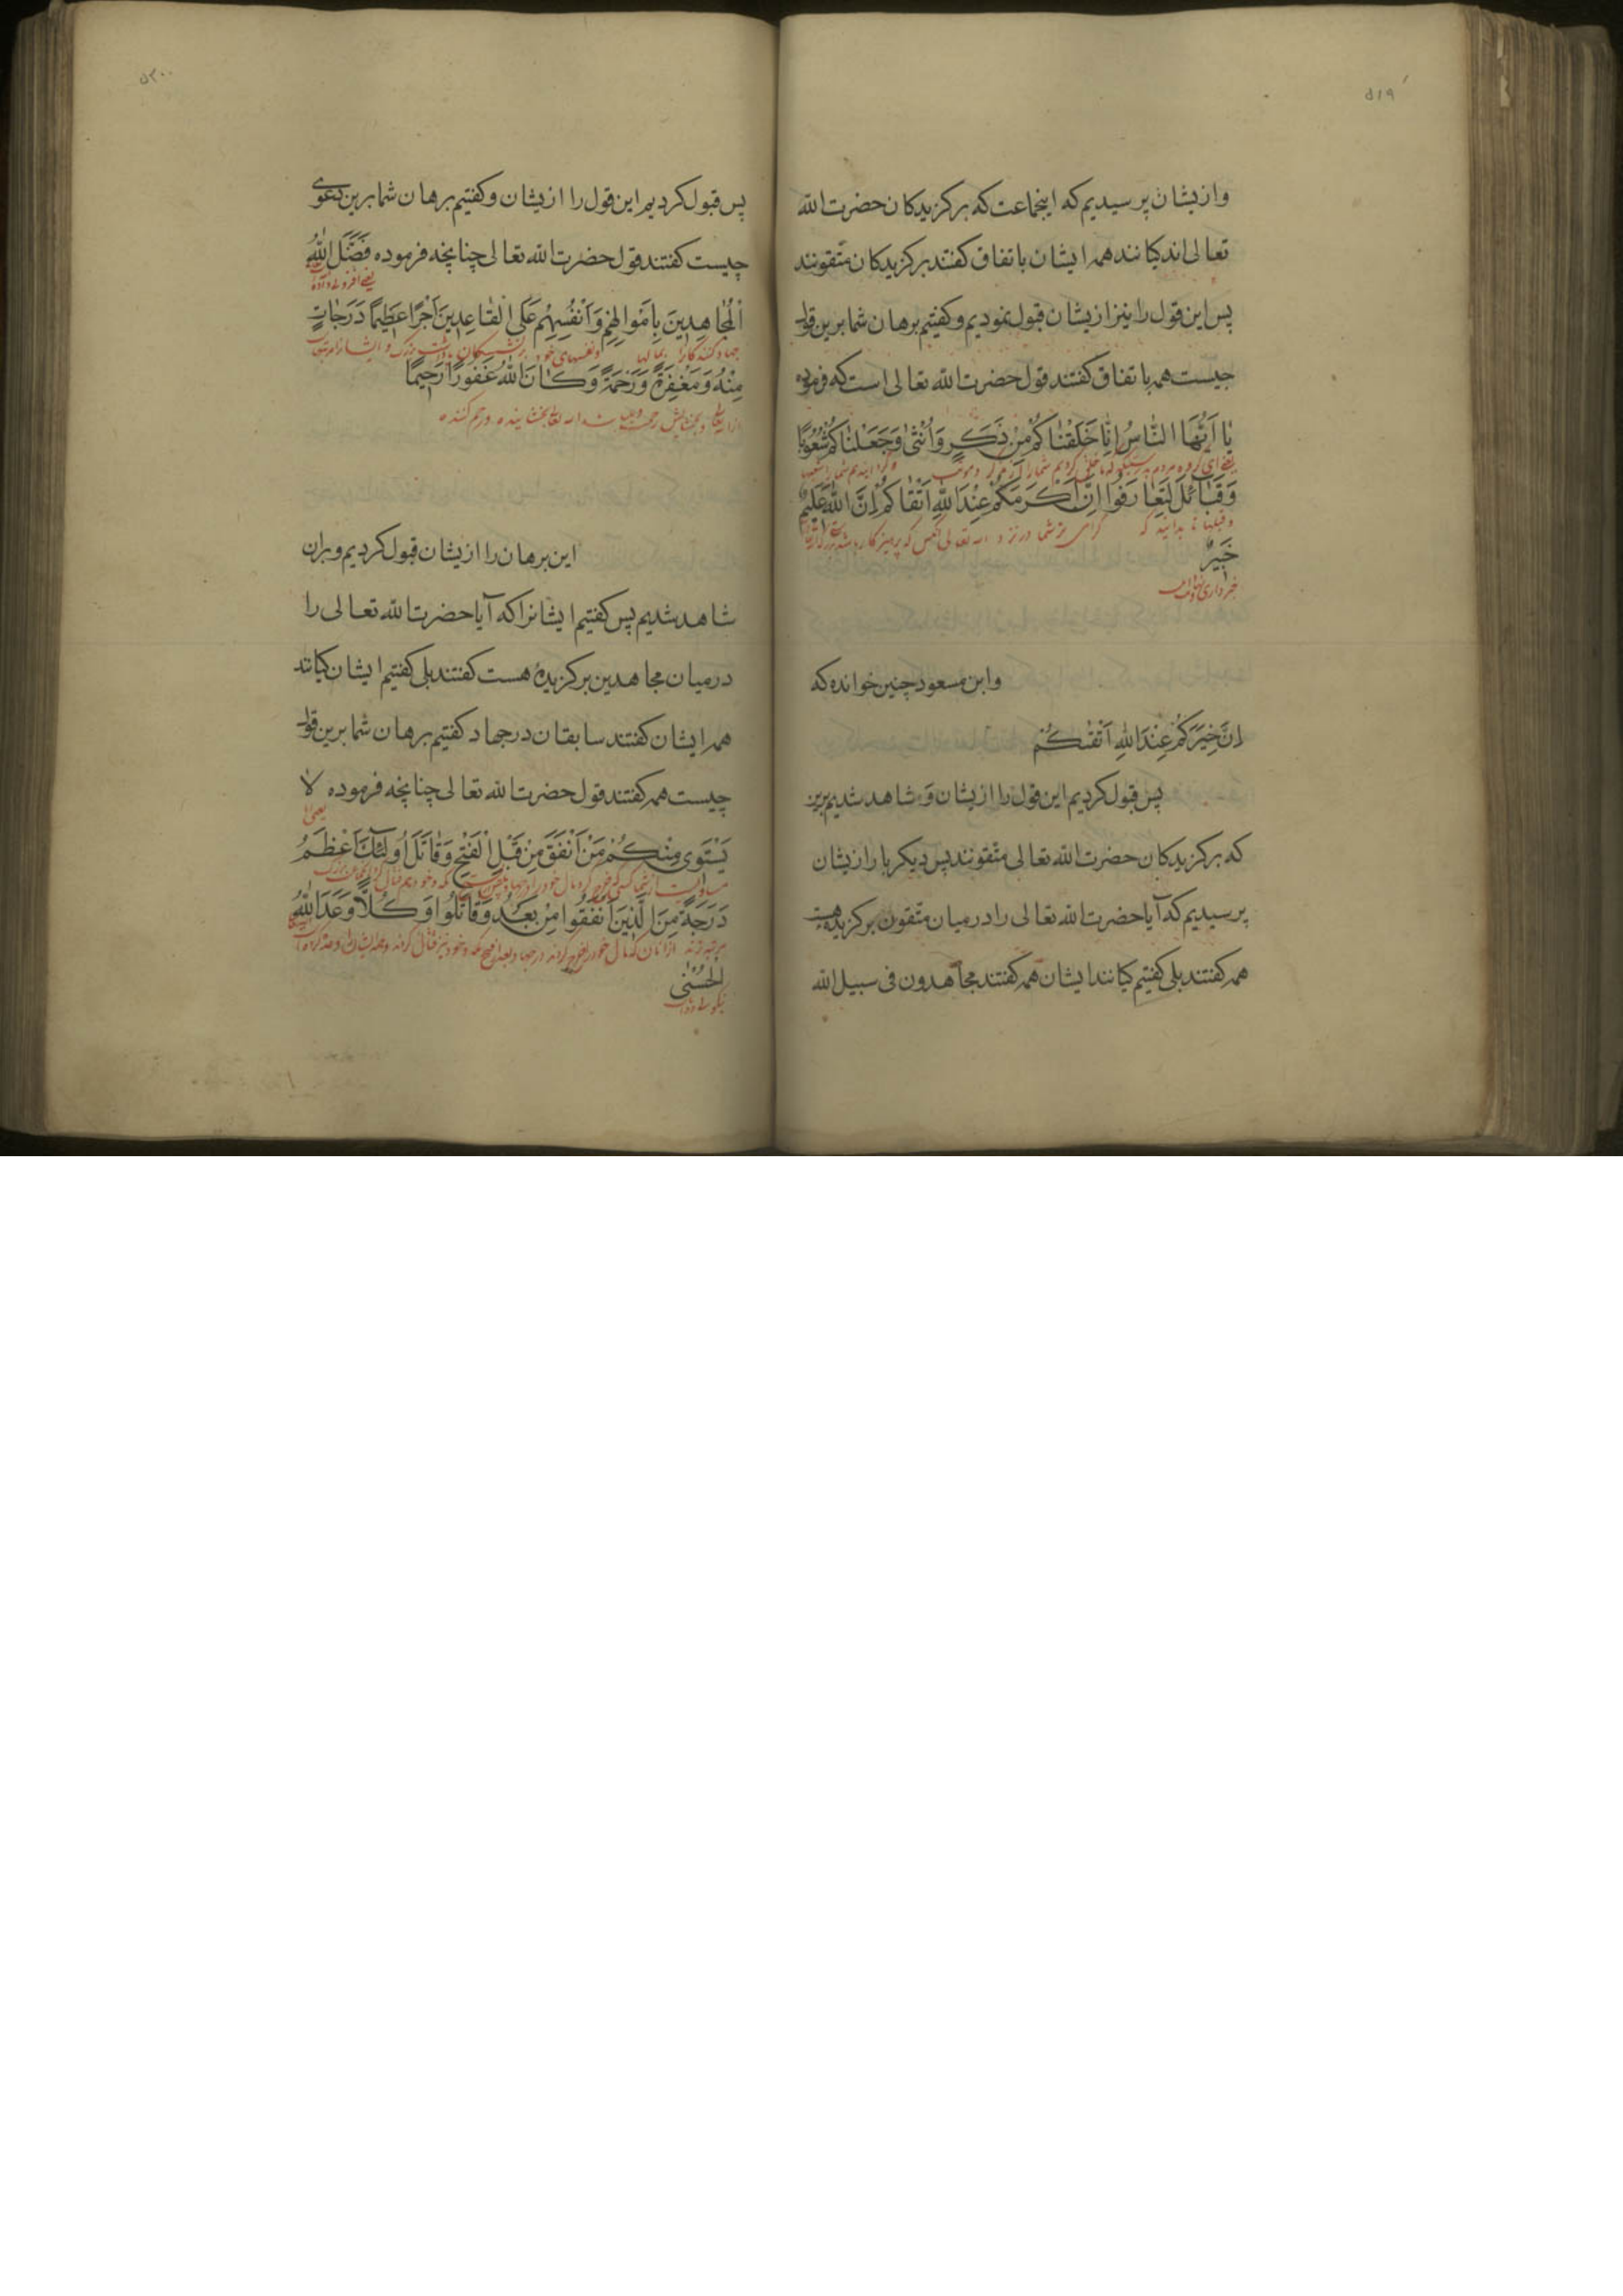 ۵۱۹
وازیشان پرسیدیم که اینجماعت که برکزیدکان حضرت الله
تعالی اند کیانند همه ایشان باتفاق کفتند برکزیدکان متقونند
پس این قول را نیز ازیشان قبول نمودیم و کفتیم برهان شما برین قول
چیست همه باتفاق کفتند قول حضرت الله تعالی است که فرموده
یٰا اَیُّهَا النّٰاسُ اِنّٰا خَلَقْنٰاکُمْ مِنْ ذَکَرٍ وَاُنْثیٰ وَجَعَلْنٰاکُمْ شُعُوبًا
یعنی ای کروه مردم بدرستیکه ما خلق کردیم شما را از مذکر و مونث و کردانیدیم شما را شعبها
وَقَبٰائِلَ لِتَعٰارَفُوا اِنَّ اَکْرَمَکُمْ عِنْدَ اللّٰهِ اَتْقٰاکُمْ اِنَّ اللّٰهَ عَلِیمٌ
و قبیلها تا بدانید که کرامی تر شما در نزد الله تعالی آنکس که پرهیزکار باشد
خَبِیرٌ
وابن مسعود چنین خوانده که
اِنَّ خِیَرَکُمْ عِنْدَ اللّٰهِ اَتْقٰکُمْ
پس قبول کردیم این قول را ازیشان وشاهد شدیم برین
که برکزیدکان حضرت الله تعالی متقونند پس دیکر بار ازیشان
پرسیدیم که آیا حضرت الله تعالی را درمیان متقون برکزیده هست
همه کفتند بلی کفتیم کیانند ایشان همه کفتند مجاهدون فی سبیل الله
۵۲۰
پس قبول کردیم این قول را ازیشان وکفتیم برهان شما برین دعوی
چیست کفتند قول حضرت الله تعالی چنانچه فرموده فَضَّلَ اللّٰهُ
الْمُجٰاهِدِینَ بِاَمْوٰالِهِمْ وَاَنْفُسِهِمْ عَلَی الْقٰاعِدِینَ اَجْرًا عَظِیمًا دَرَجٰاتٍ
جهاد کنندکانرا بمالها و نفسهای خود بر نشستکان
مِنْهُ وَمَغْفِرَةً وَرَحْمَةً وَکٰانَ اللّٰهُ غَفُورًا رَحِیمًا
این برهان را ازیشان قبول کردیم وبران
شاهد شدیم پس کفتیم ایشانرا که آیا حضرت الله تعالی را
درمیان مجاهدین برکزیدهٔ هست کفتند بلی کفتیم ایشان کیانند
همه ایشان کفتند سابقان درجهاد کفتیم برهان شما برین قول
چیست همه کفتند قول حضرت الله تعالی چنانچه فرموده لاٰ
یَسْتَوِی مِنْکُمْ مَنْ اَنْفَقَ مِنْ قَبْلِ الْفَتْحِ وَقٰاتَلَ اُولٰئِکَ اَعْظَمُ
دَرَجَةً مِنَ الَّذِینَ اَنْفَقُوا مِنْ بَعْدُ وَقٰاتَلُوا وَکُلًّا وَعَدَ اللّٰهُ
الْحُسْنٰی